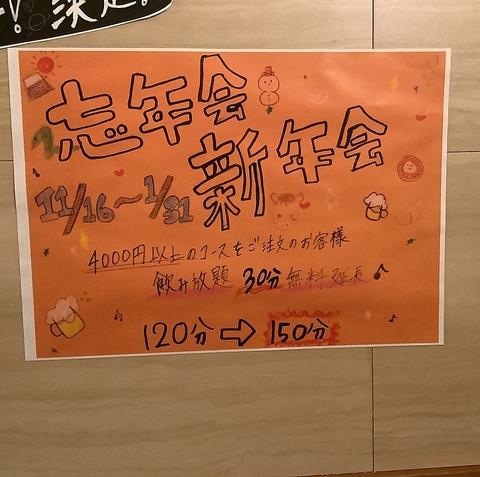 決定!
忘年会
新年会
11/16～1/31
4000円以上のコースをご注文のお客様
飲み放題 30分 無料延長
120分⇨150分